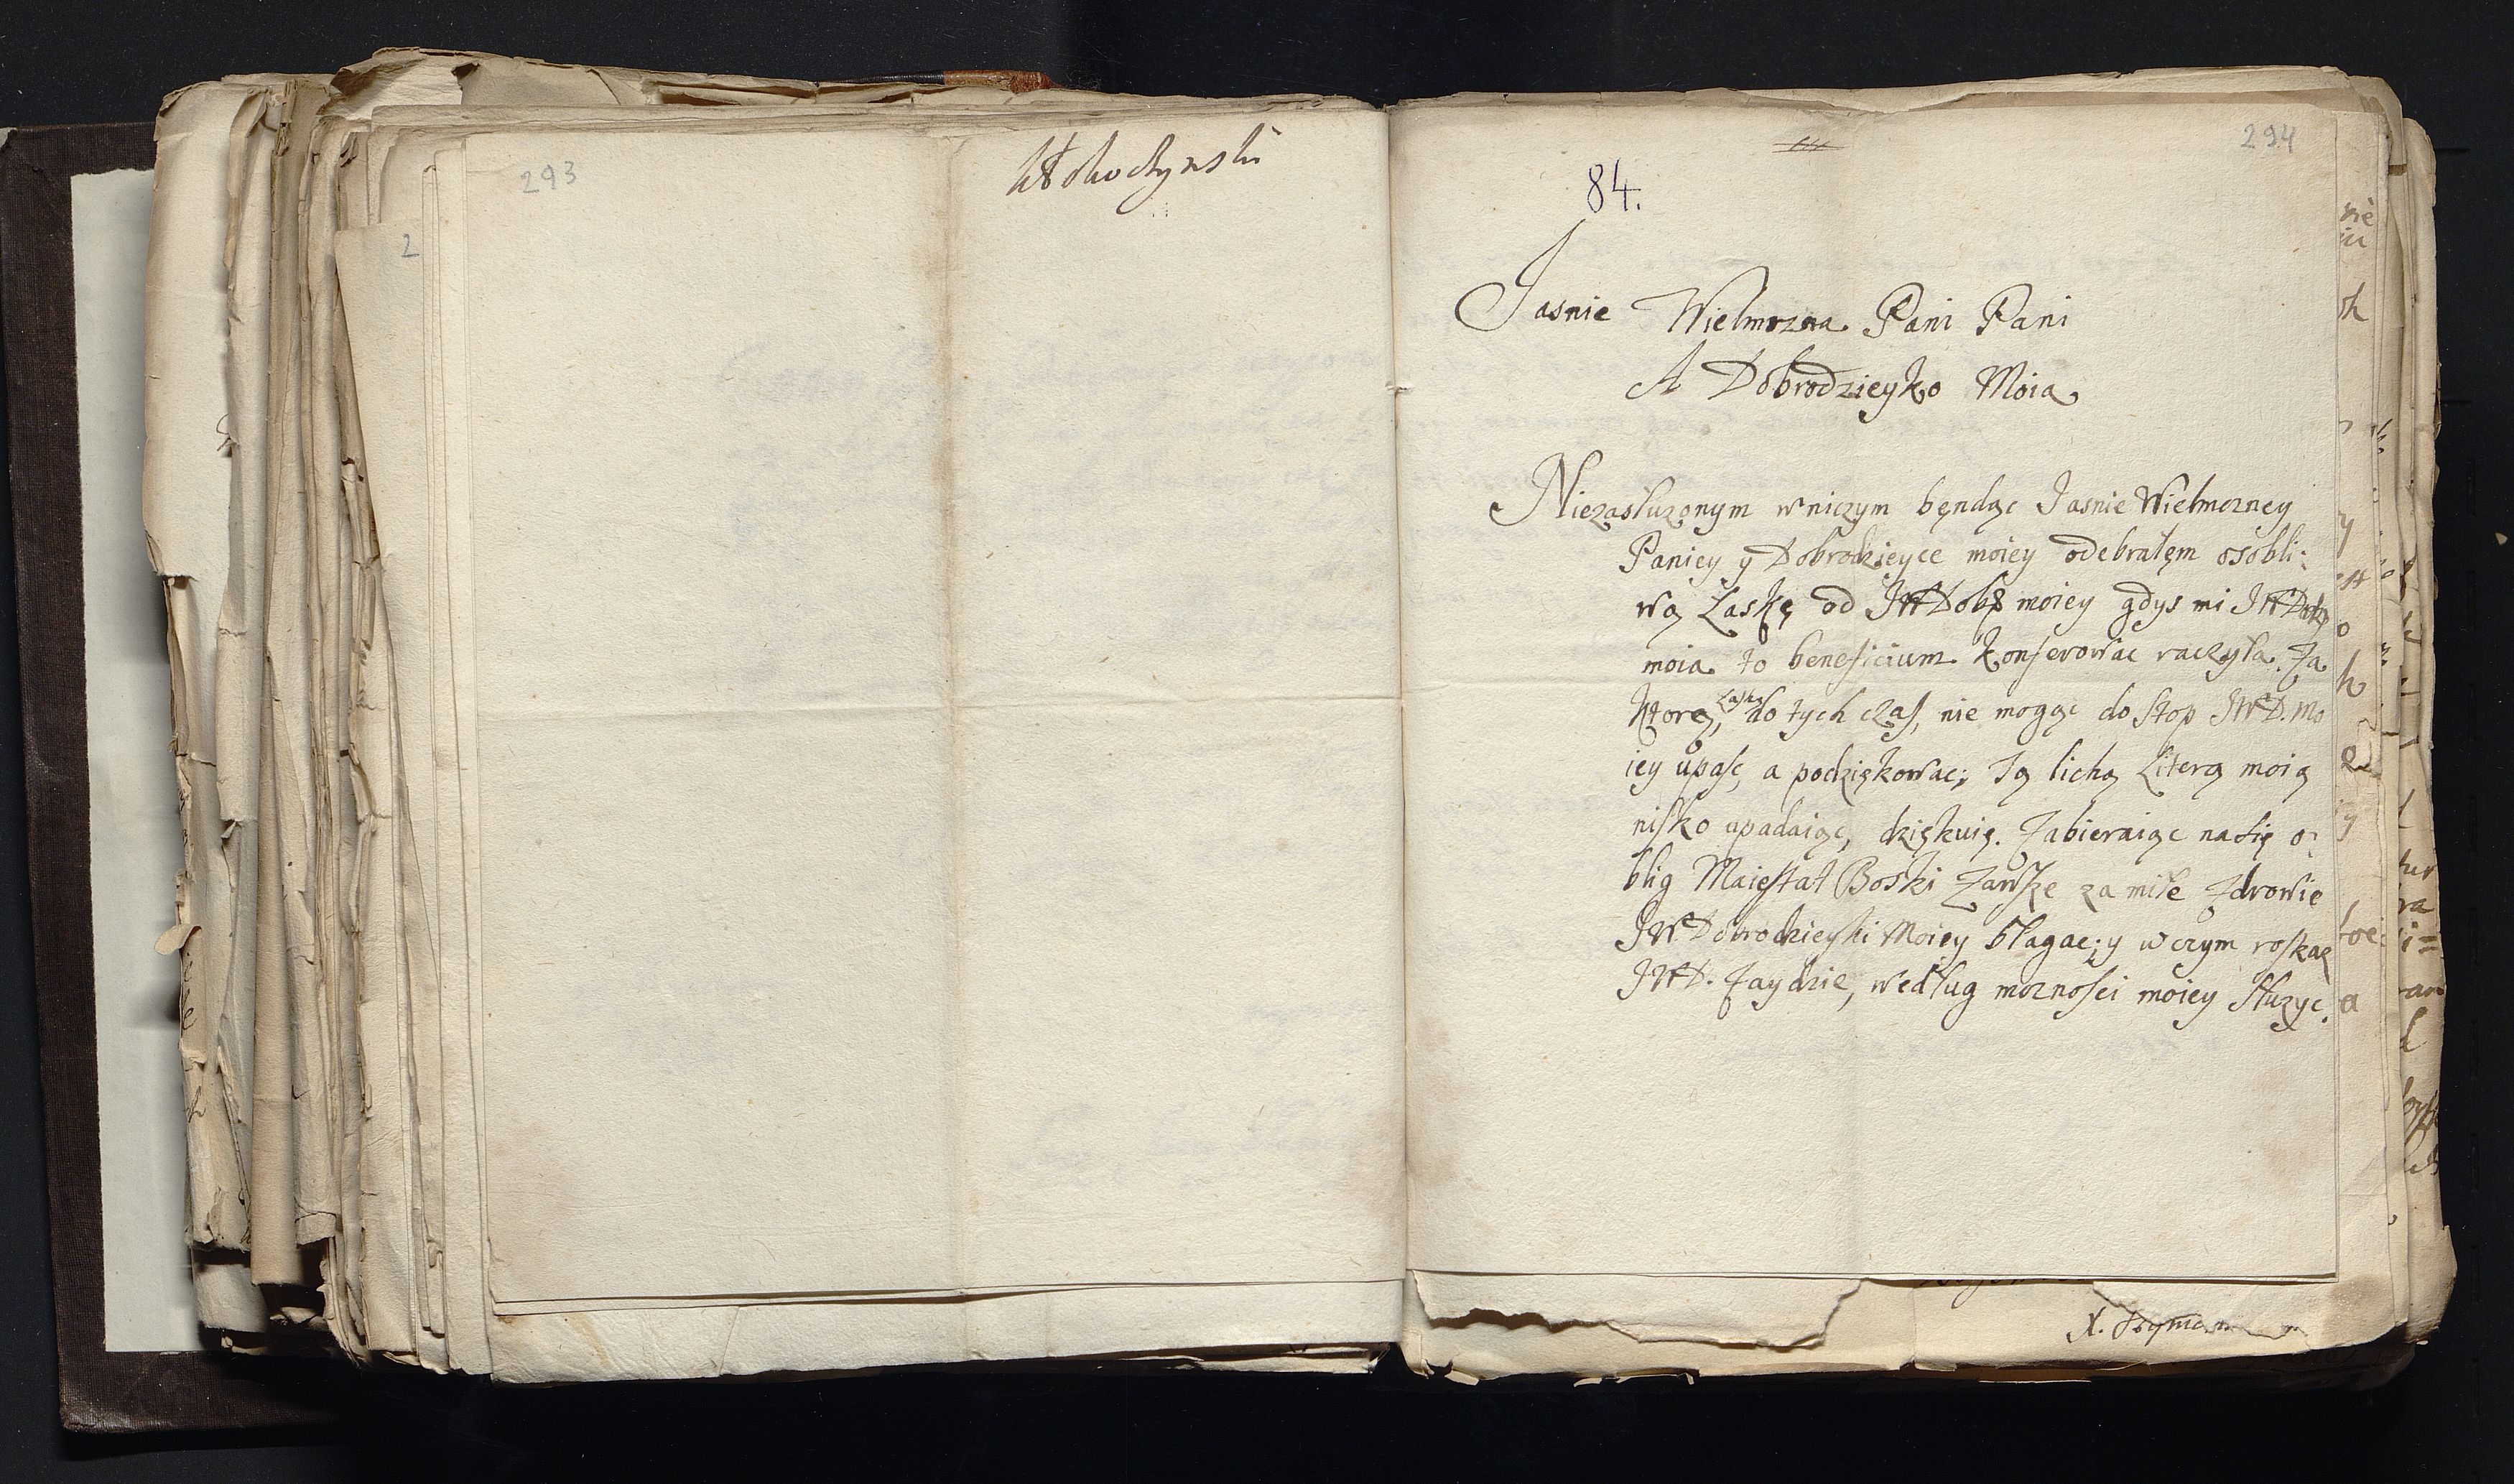 293
294
84.
Jasnie Wielmozna Pani Pani
A Dobrodzieyko Moia
Niezasłuzonym w niczym będąc Jasnie Wielmozney
Paniey y Dobrodzieyce moiey odebrałęm osobli:
wą Łaskę od JWDob moiey gdys mi JWDobr
moia to beneficium konserwowac raczyła. Za
Ktorą, łaskę do tych czas, nie mogąc do stop JWD. mo
iey upasc, a podziękowac; Tą lichą Literą moią
nisko upadaiąc, dziękuię. Zabieraiąc na się o:
blig Maiestat Boski zawsze za miłe zdrowie
JWDobrodzieyki Moiey błagac; y w czym roskaz
JWD. Zaydzie, według moznosci moiey słuzyc.